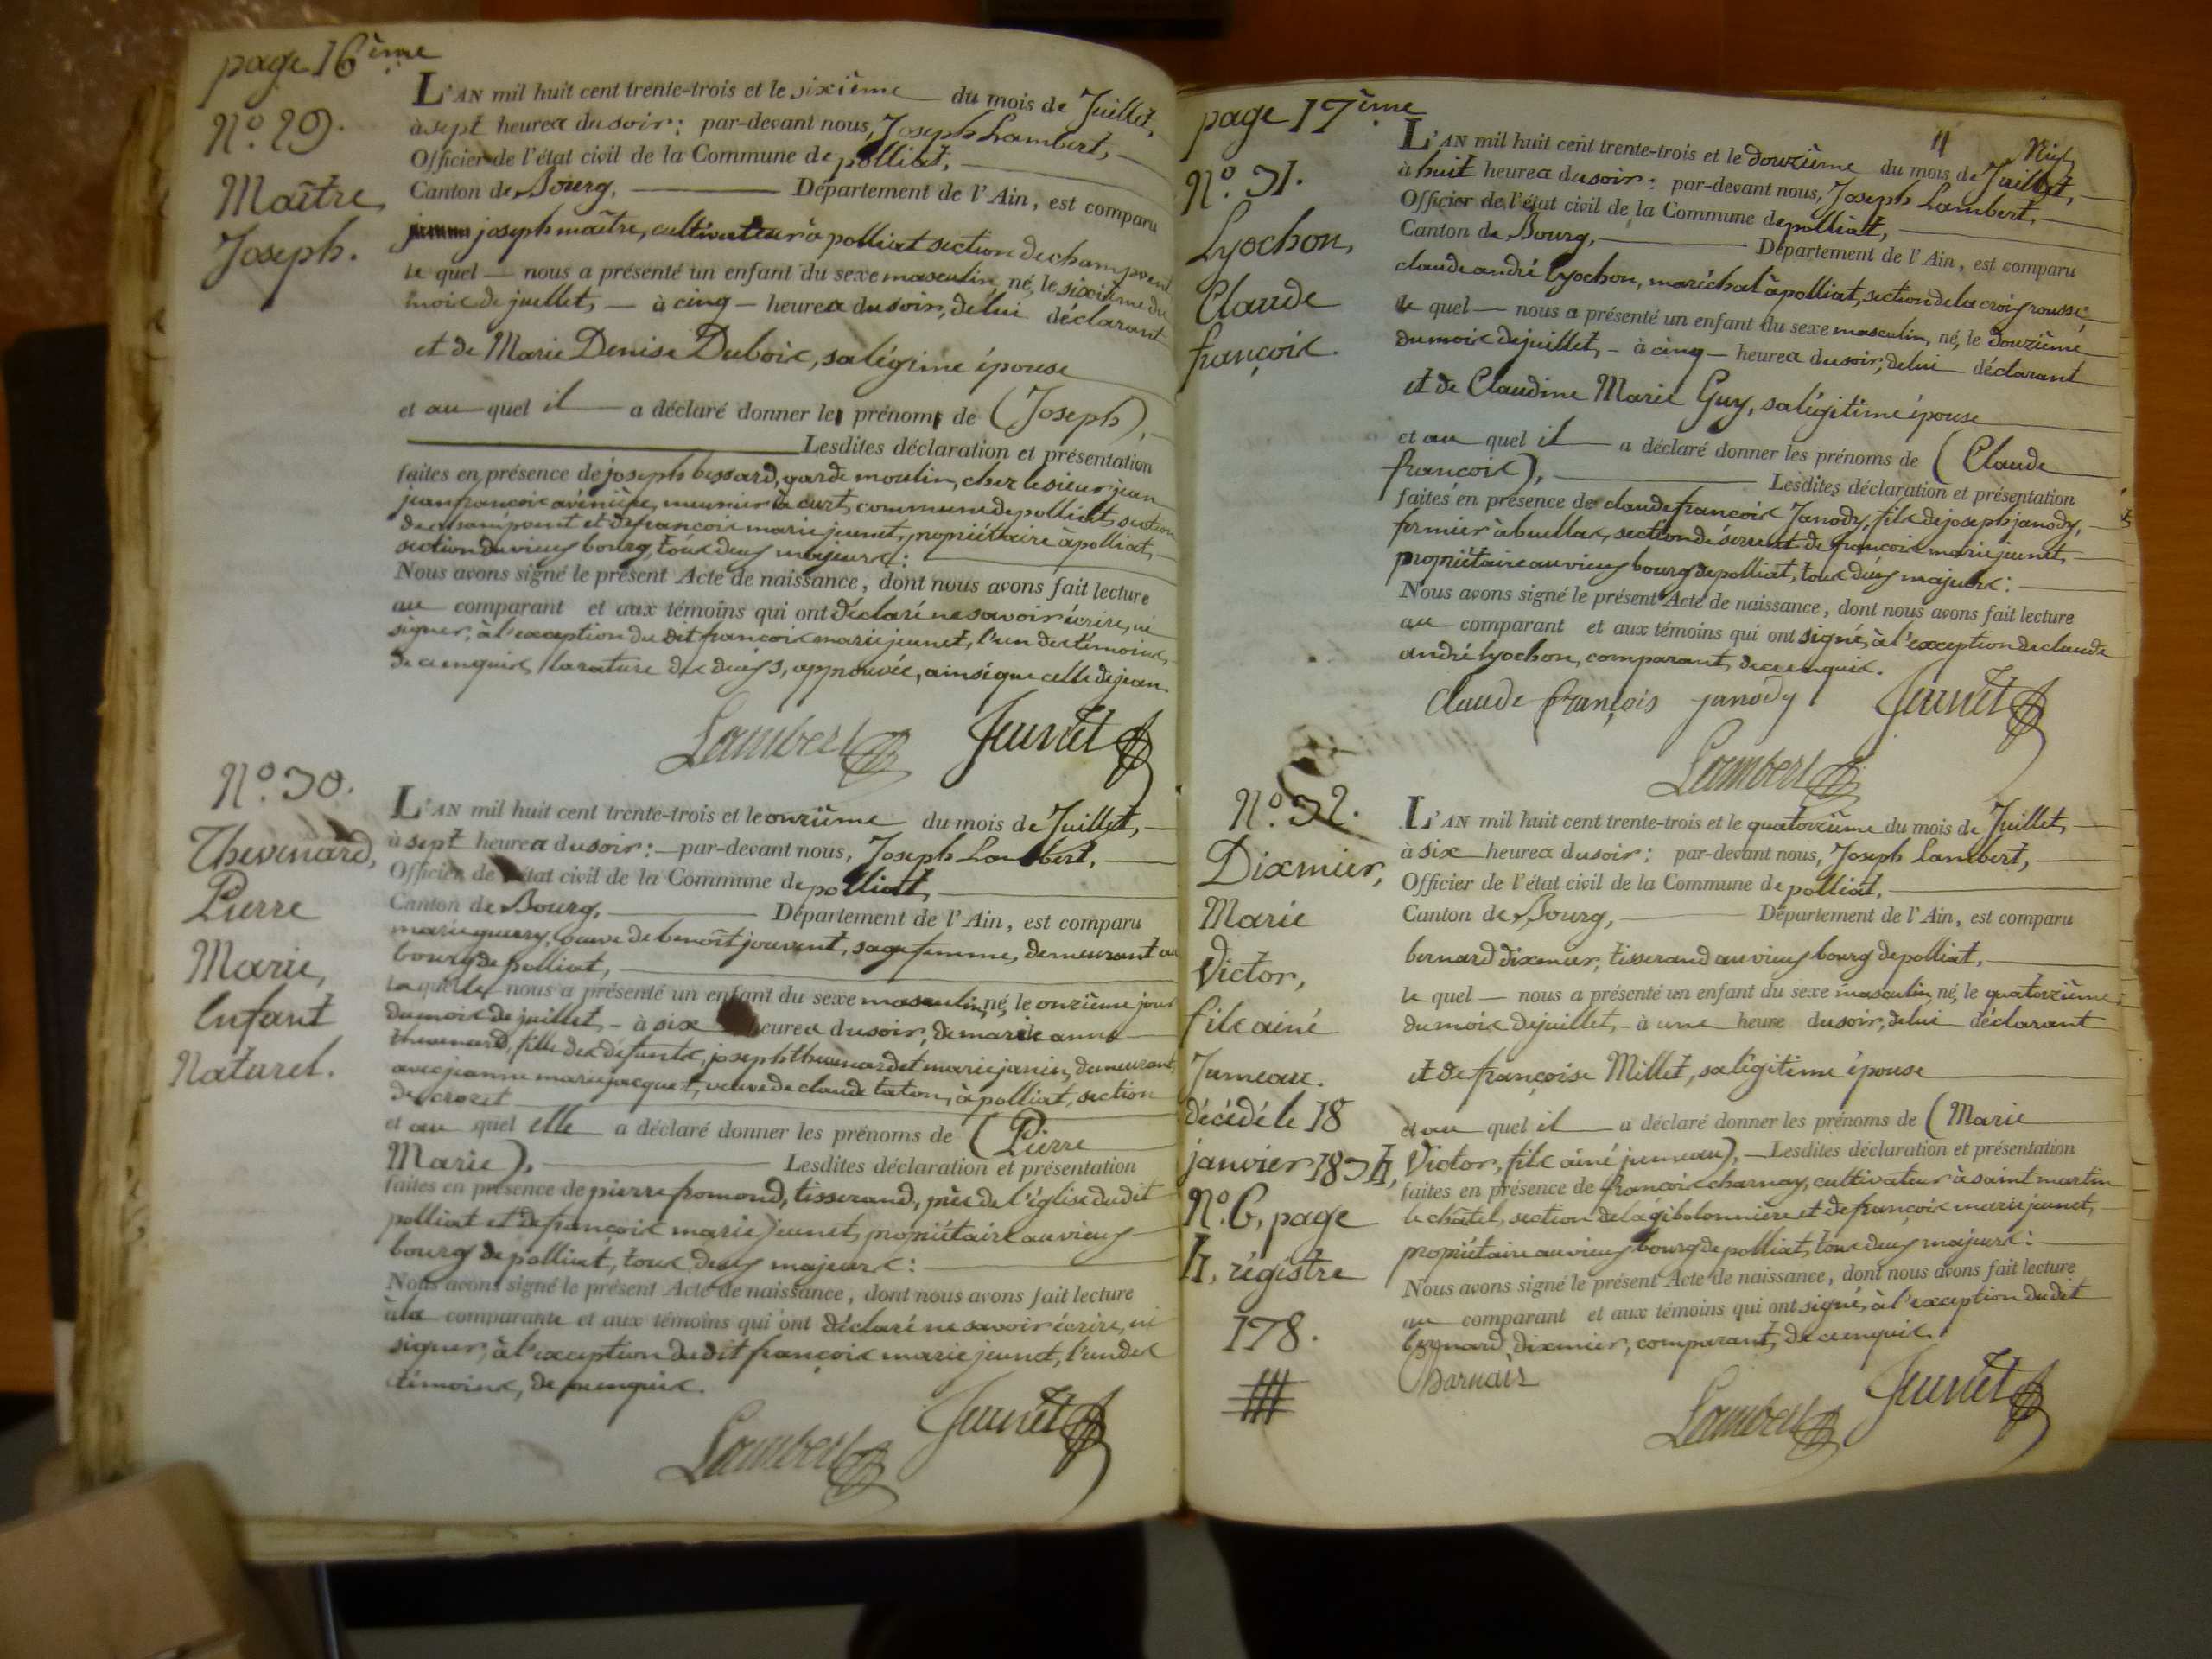 page 16ème
N.º 29.
Maître,
Joseph.
L'AN mil huit cent trente-trois et le sixième du mois de Juillet,
à sept heures du soir: par-devant nous, Joseph Lambert,
Officier de l'état civil de la Commune de polliat,
Canton de Bourg, Département de l'Ain, est comparu
joseph maître, cultivateur à polliat section de champvent
le quel nous a présenté un enfant du sexe masculin, né, le sixième du
mois de juillet, à cinq heures du soir, de lui déclarant
et de Marie Denise Dubois, sa légime épouse
et au quel il a déclaré donner les prénoms de (Joseph),
Lesdites déclaration et présentation
faites en présence de joseph bessard, garde moulin, chez le sieur jean
jean françois avenière, meunier à curt, commune de polliat, section
de et de françois marie jeunet, propriétaire à polliat,
section du vieux bourg, tous deux majeurs:
Nous avons signé le présent Acte de naissance, dont nous avons fait lecture
au comparant et aux témoins qui ont déclaré ne savoir écrire, ni
signer, à l'exception du dit françois marie jeunet, l'un des témoins,
de ce enquis, la rature des deux s, approuvée, ainsi que celle de jean.
Lambert Jeunet
N.º 30.
Thevenard,
Pierre
Marie,
Enfant
Naturel.
L'AN mil huit cent trente-trois et le onzième du mois de Juillet,
à sept heures du soir: par-devant nous, Joseph Lambert,
Officier de l'état civil de la Commune de polliat,
Canton de Bourg, Département de l'Ain, est comparu
marie guerry, veuve de benoît jouvent, sage femme, demeurant au
bourg de polliat,
la quelle nous a présenté un enfant du sexe masculin, né, le onzième jour
du mois de juillet, à six heures du soir, de marie anne
thevenard, fille des défunts, joseph thevenard et marie janin, demeurant,
avec jeanne marie jacquet, veuve de claude taton, à polliat, section
du crozet
et au quel elle a déclaré donner les prénoms de (Pierre
Marie), Lesdites déclaration et présentation
faites en présence de pierre fromond, tisserand, près de l'église du dit
polliat et de françois marie jeunet, propriétaire au vieux
bourg de polliat, tous deux majeurs:
Nous avons signé le présent Acte de naissance, dont nous avons fait lecture
à la comparante et aux témoins qui ont déclaré ne savoir écrire, ni
signer, à l'exception du dit françois marie jeunet, l'un des
témoins, de ce enquis.
Lambert Jeunet
page 17ème
N.º 31.
Lyochon,
Claude
françois.
L'AN mil huit cent trente-trois et le douzième du mois de Juillet,
à huit heures du soir: par-devant nous, Joseph Lambert,
Officier de l'état civil de la Commune de polliat,
Canton de Bourg, Département de l'Ain, est comparu
claude andré lyochon, maréchal à polliat, section de la croix rousse,
le quel nous a présenté un enfant du sexe masculin, né, le douzième
du mois de juillet, à cinq heures du soir, de lui déclarant
et de Claudine Marie Guy, sa légitime épouse
et au quel il a déclaré donner les prénoms de (Claude
françois), Lesdites déclaration et présentation
faites en présence de claude françois Janody, fils de joseph janody,
fermier à buellas, section de serre et de françois marie jeunet,
propriétaire au vieux bourg de polliat, tous deux majeurs:
Nous avons signé le présent Acte de naissance, dont nous avons fait lecture
au comparant et aux témoins qui ont signé, à l'exception de claude
andré lyochon, comparant, de ce enquis.
Claude françois janody Jeunet
Lambert
N.º 32.
Dixmier,
Marie
Victor,
fils ainé
Jumeau.
décédé le 18
janvier 1834,
N.º 6, page
4, régistre
178.
L'AN mil huit cent trente-trois et le quatorzième du mois de Juillet,
à six heures du soir: par-devant nous, Joseph Lambert,
Officier de l'état civil de la Commune de polliat,
Canton de Bourg, Département de l'Ain, est comparu
bernard dixmier, tisserand au vieux bourg de polliat,
le quel nous a présenté un enfant du sexe masculin, né, le quatorzième
du mois de juillet, à une heure du soir, de lui déclarant
et de françoise Millet, sa légitime épouse
et au quel il a déclaré donner les prénoms de (Marie
Victor, fils ainé jumeau), Lesdites déclaration et présentation
faites en présence de françois charnay, cultivateur à saint martin
le châtel, section de la gibolonnière et de françois marie jeunet,
propriétaire au vieux bourg de polliat, tous deux majeurs:
Nous avons signé le présent Acte de naissance, dont nous avons fait lecture
au comparant et aux témoins qui ont signé, à l'exception du dit
bernard dixmier, comparant, de ce enquis.
Lambert Jeunet